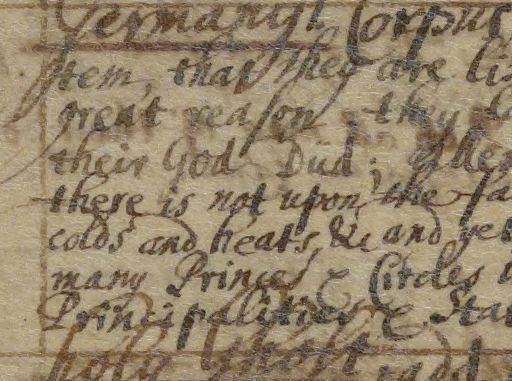 Germanys Corpus
Item, that they are
great reason, they
their God Dud.
there is not upon the
colds and heats, &c and yet
many Princes & Cities
Principalities & Sta
holy Ghost